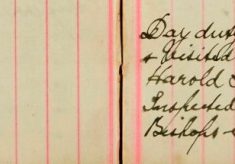 Day dut
+ Visited
Harold
Inspected
Bishops